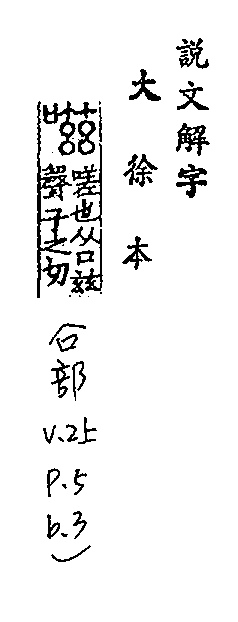 説文解字
大徐本
嗞
嗟也从口茲
聲子之切
口部
v.2上
p.5
b.3